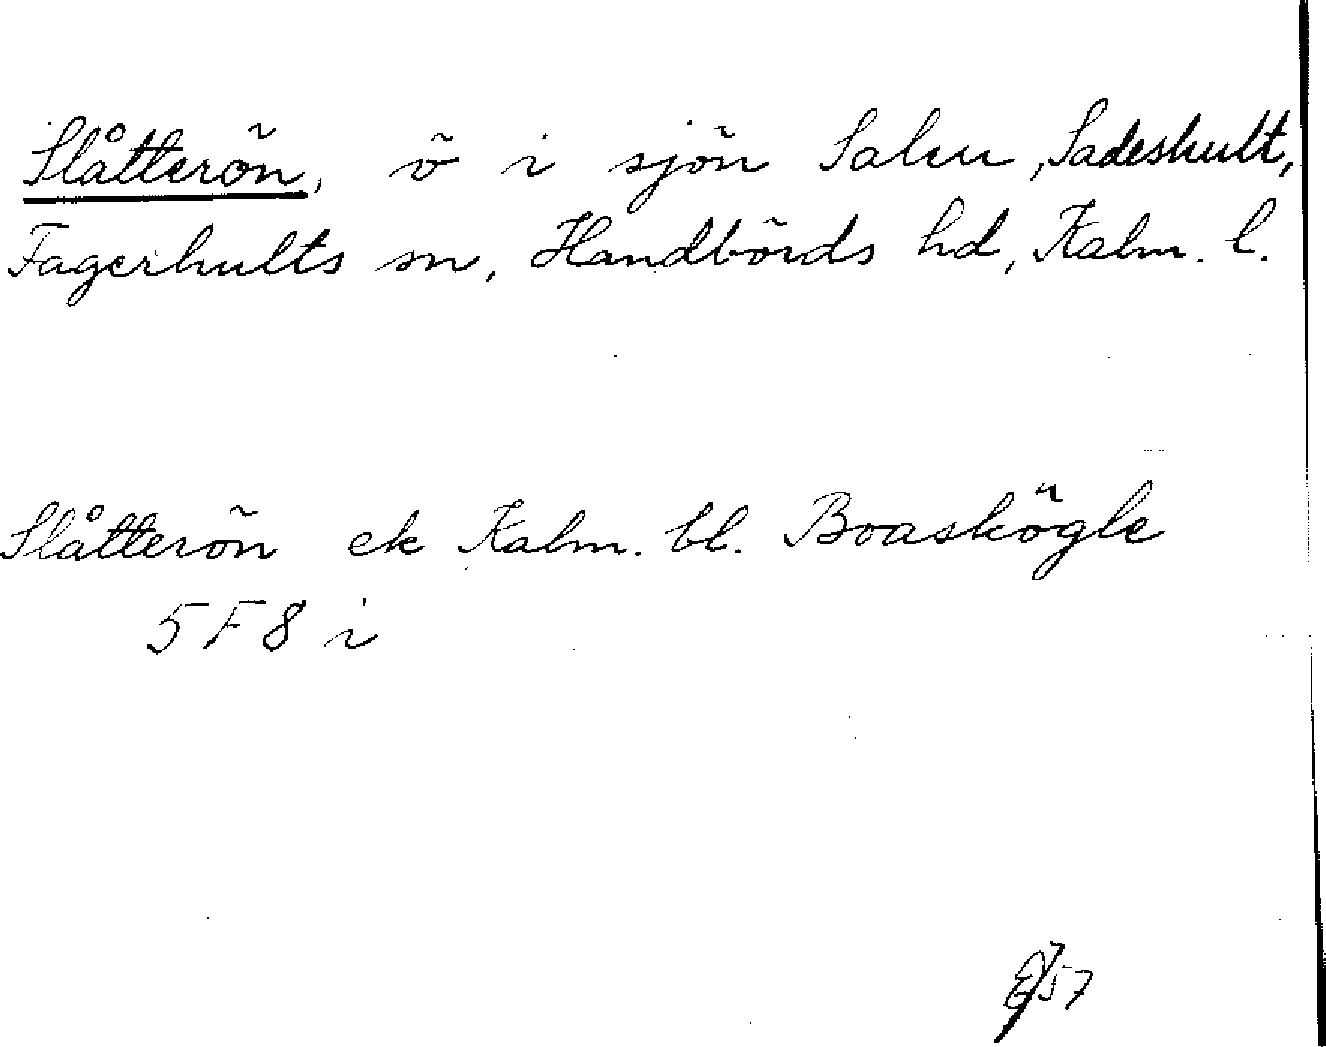 Slåtterön, ö i sjön Salen, Sadeshult,
Fagerhults sn, Handbörds hd, Kalm. l.
Slåtterön ek Kalm. bl. Boaskögle
5F8 i
57